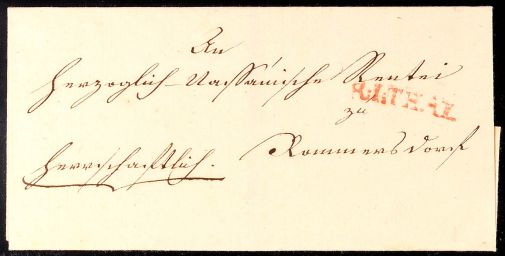 An
Herzoglich-Nassauische Rentei
zu
Herrschaftlich. Rommersdorf